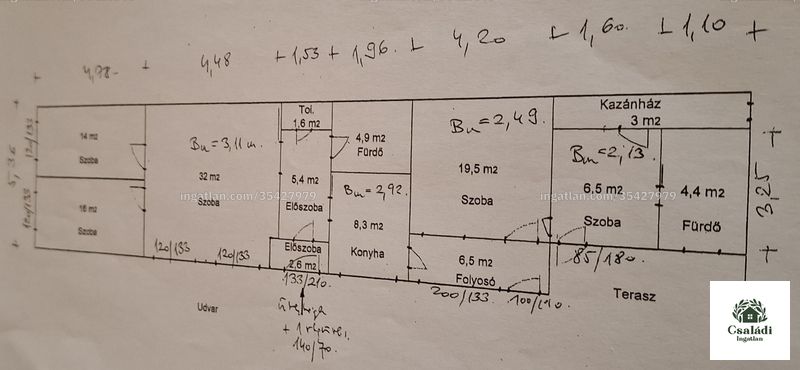 4,78
4,48
+ 1,53 + 1,96.
4,20
1,60
1,10
5,36
120/133
120/133
14 m2
Szoba
16 m2
Szoba
Bm=3,11 m.
32 m2
Szoba
Tol.
1,6 m2
5,4 m2
Előszoba
Előszoba
2,6 m2
4,9 m2
Fürdő
Bm=2,92
8,3 m2
Konyha
Bm=2,49.
19,5 m2
Szoba
6,5 m2
Folyosó
Kazánház
3 m2
Bm=2,13.
6,5 m2
Szoba
4,4 m2
Fürdő
3,25
120/133
120/133
133/210.
200/133.
100/210
85/180.
Udvar
Terasz
+ 1
140/70.
ingatlan.com/35427979
ingatlan.com/35427979
ingatlan.com/35427979
Családi
Ingatlan